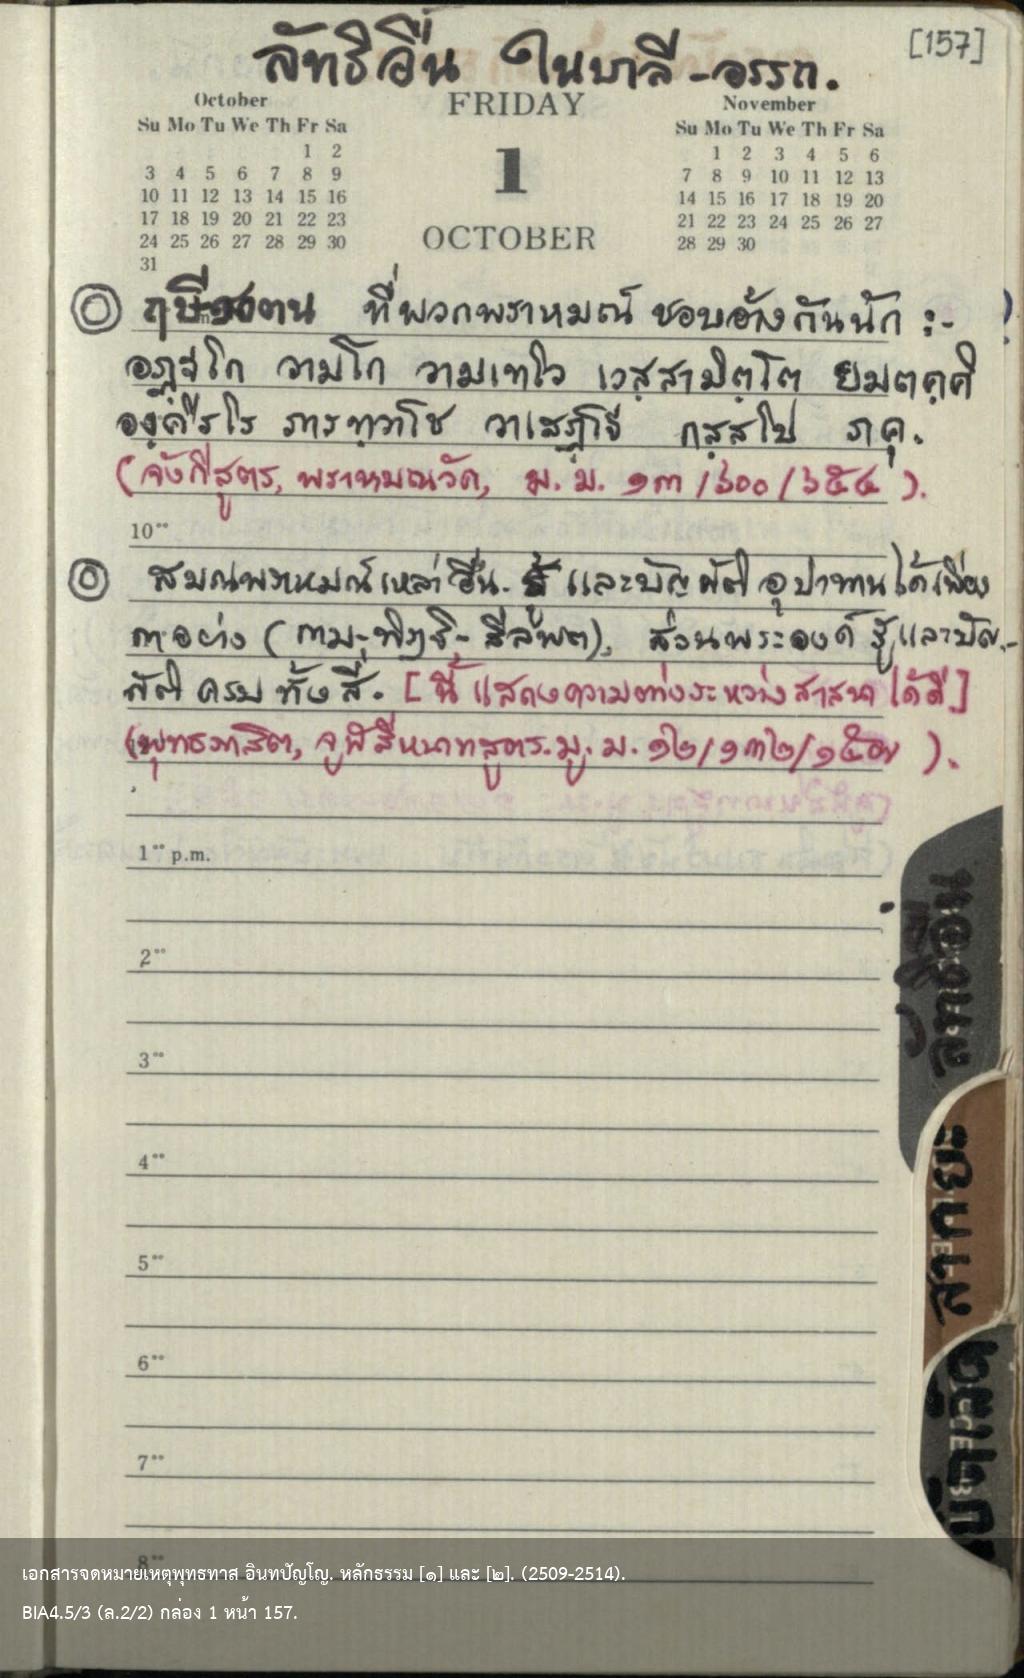 ลัทธิอื่น ในบาลี - อรรถ.
[157]
October
Su Mo Tu We Th Fr Sa
1 2
3 4 5 6 7 8 9
10 11 12 13 14 15 16
17 18 19 20 21 22 23
24 25 26 27 28 29 30
31
FRIDAY
1
OCTOBER
November
Su Mo Tu We Th Fr Sa
1 2 3 4 5 6
7 8 9 10 11 12 13
14 15 16 17 18 19 20
21 22 23 24 25 26 27
28 29 30
ที่พวกพราหมณ์ ชอบอ้างกันนัก :-
อฏฺฐโก วามโก วามเทโว เวสฺสามิตฺโต ยมตคฺคิ
องฺคีรโร ภารทฺวาโช วาเสฏฺโฐ กสฺสโป ภคุ.
(จังกีสูตร, พราหมณวัค, ม. ม. ๑๓ /๖๐๐ /๖๕๔ ).
10⁰⁰
สมณพราหมณ์เหล่าอื่น. รู้ และบัญญัติ อุปาทานได้เพียง
๓ อย่าง (กาม-, ทิฏฐิ-, สีลัพพต), ส่วนพระองค์ รู้และบัญ-
ญัติ ครบ ทั้งสี่. [นี้ แสดงความต่างระหว่างศาสนา ได้ดี]
(พุทธภาสิต, จูฬสีหนาทสูตร. มู. ม. ๑๒/๑๓๒/๑๕๗ ).
1⁰⁰ p.m.
2⁰⁰
3⁰⁰
4⁰⁰
5⁰⁰
6⁰⁰
7⁰⁰
8⁰⁰
ลัทธิอื่น
สากยะ
เอกสารจดหมายเหตุพุทธทาส อินทปัญโญ. หลักธรรม [๑] และ [๒]. (2509-2514).
BIA4.5/3 (ล.2/2) กล่อง 1 หน้า 157.